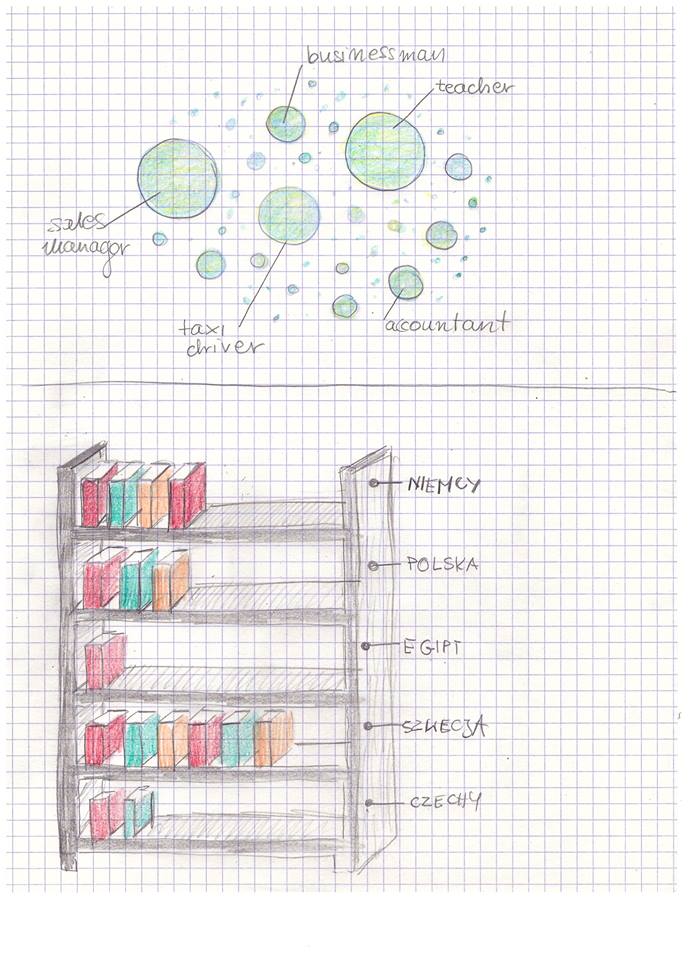 businessman
teacher
sales
manager
taxi
driver
accountant
NIEMCY
POLSKA
EGIPT
SZWECJA
CZECHY